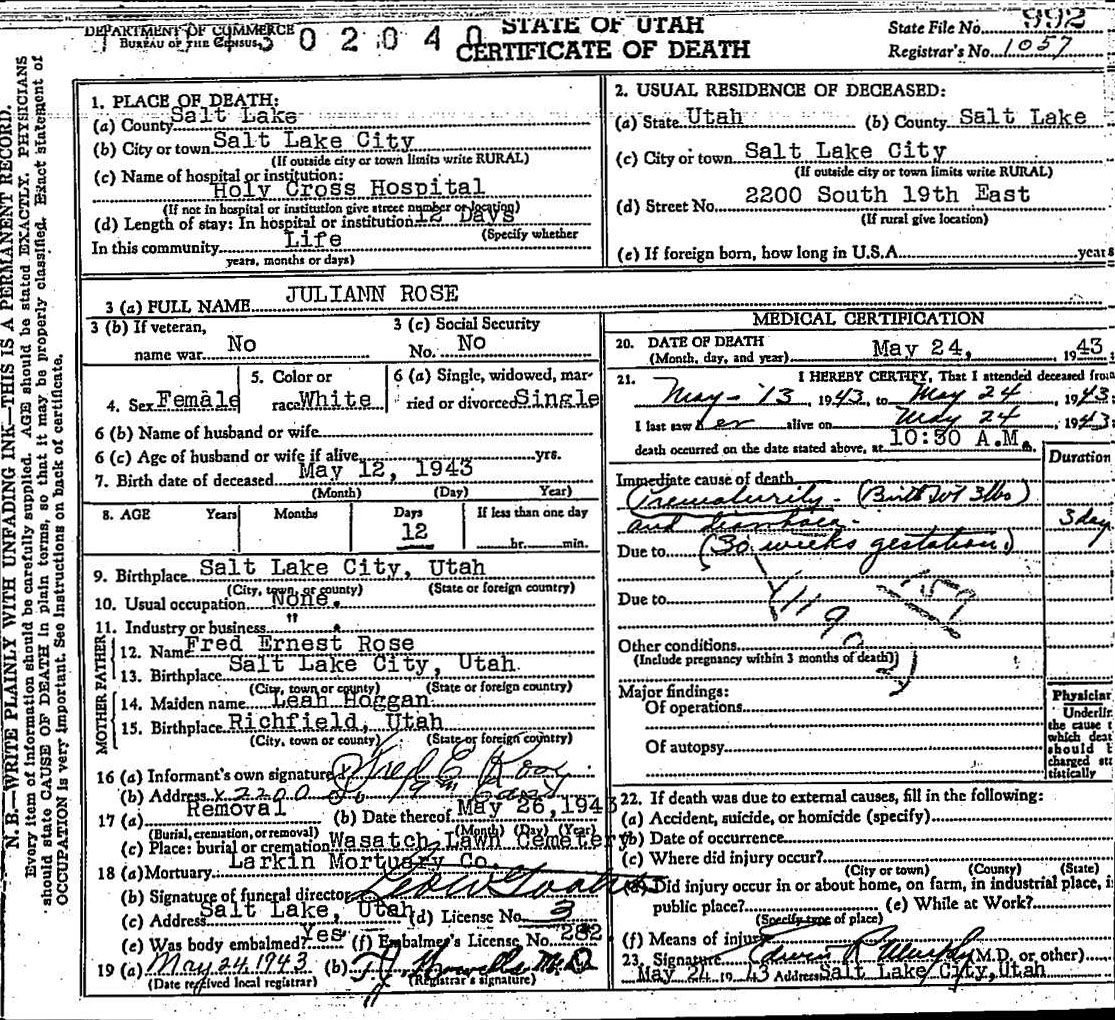 DEPARTMENT OF COMMERCE
BUREAU OF THE CENSUS
0 2 0 4 0
STATE OF UTAH
CERTIFICATE OF DEATH
State File No. 992
Registrar's No. 1057
N. B.—WRITE PLAINLY WITH UNFADING INK—THIS IS A PERMANENT RECORD.
Every item of information should be carefully supplied. AGE should be stated EXACTLY. PHYSICIANS
should state CAUSE OF DEATH in plain terms, so that it may be properly classified. Exact statement of
OCCUPATION is very important. See instructions on back of certificate.
1. PLACE OF DEATH:
(a) County Salt Lake
(b) City or town Salt Lake City
(If outside city or town limits write RURAL)
(c) Name of hospital or institution:
Holy Cross Hospital
(If not in hospital or institution give street number or location)
(d) Length of stay: In hospital or institution 12 Days
(Specify whether
In this community Life
years, months or days)
2. USUAL RESIDENCE OF DECEASED:
(a) State Utah (b) County Salt Lake
(c) City or town Salt Lake City
(If outside city or town limits write RURAL)
(d) Street No. 2200 South 19th East
(If rural give location)
(e) If foreign born, how long in U.S.A. years
3 (a) FULL NAME JULIANN ROSE
3 (b) If veteran,
name war No
3 (c) Social Security
No. No
4. Sex Female
5. Color or
race White
6 (a) Single, widowed, mar-
ried or divorced Single
6 (b) Name of husband or wife
6 (c) Age of husband or wife if alive yrs.
7. Birth date of deceased May 12, 1943
(Month) (Day) Year)
8. AGE Years Months Days If less than one day
12 hr. min.
9. Birthplace Salt Lake City, Utah
(City, town, or county) (State or foreign country)
10. Usual occupation None.
11. Industry or business " .
FATHER
12. Name Fred Ernest Rose
13. Birthplace Salt Lake City, Utah.
(City, town or county) (State or foreign country)
MOTHER
14. Maiden name Leah Hoggan
15. Birthplace Richfield, Utah
(City, town or county) (State or foreign country)
16 (a) Informant's own signature X Fred E. Rose
(b) Address X 2200 So 19th East
17 (a) Removal (b) Date thereof May 26, 1943
(Burial, cremation, or removal) (Month) (Day) (Year)
(c) Place: burial or cremation Wasatch Lawn Cemetery
18 (a) Mortuary Larkin Mortuary Co.
(b) Signature of funeral director
(c) Address Salt Lake, Utah (d) License No. 3
(e) Was body embalmed? Yes (f) Embalmer's License No. 282
19 (a) May 24, 1943 (b) M.D.
(Date received local registrar) (Registrar's signature)
MEDICAL CERTIFICATION
20. DATE OF DEATH
(Month, day, and year) May 24, 1943
21. I HEREBY CERTIFY, That I attended deceased from
May - 13, 1943, to May 24, 1943
I last saw her alive on May 24 1943
death occurred on the date stated above, at 10:50 A.M.
Duration
Immediate cause of death
Prematurity - (Birth Wt 3 lbs)
and diarrhoea. 3 day
Due to (30 weeks gestation.)
Due to
159
Other conditions
(Include pregnancy within 3 months of death)
Major findings:
Of operations
Of autopsy
Physician
Underline
the cause t
which deat
should b
charged sta
tistically
22. If death was due to external causes, fill in the following:
(a) Accident, suicide, or homicide (specify)
(b) Date of occurrence
(c) Where did injury occur?
(City or town) (County) (State)
(d) Did injury occur in or about home, on farm, in industrial place, i
public place? (e) While at Work?
(Specify type of place)
(f) Means of injury
23. Signature Edwin R. Murphy (M.D. or other)
May 24 1943 Address Salt Lake City, Utah